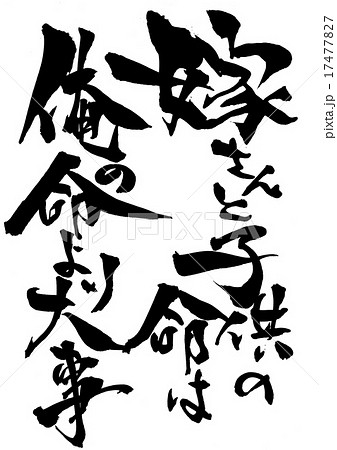 嫁さんと子供の
命は
俺の
命より
大事
PIXTA
pixta.jp - 17477827